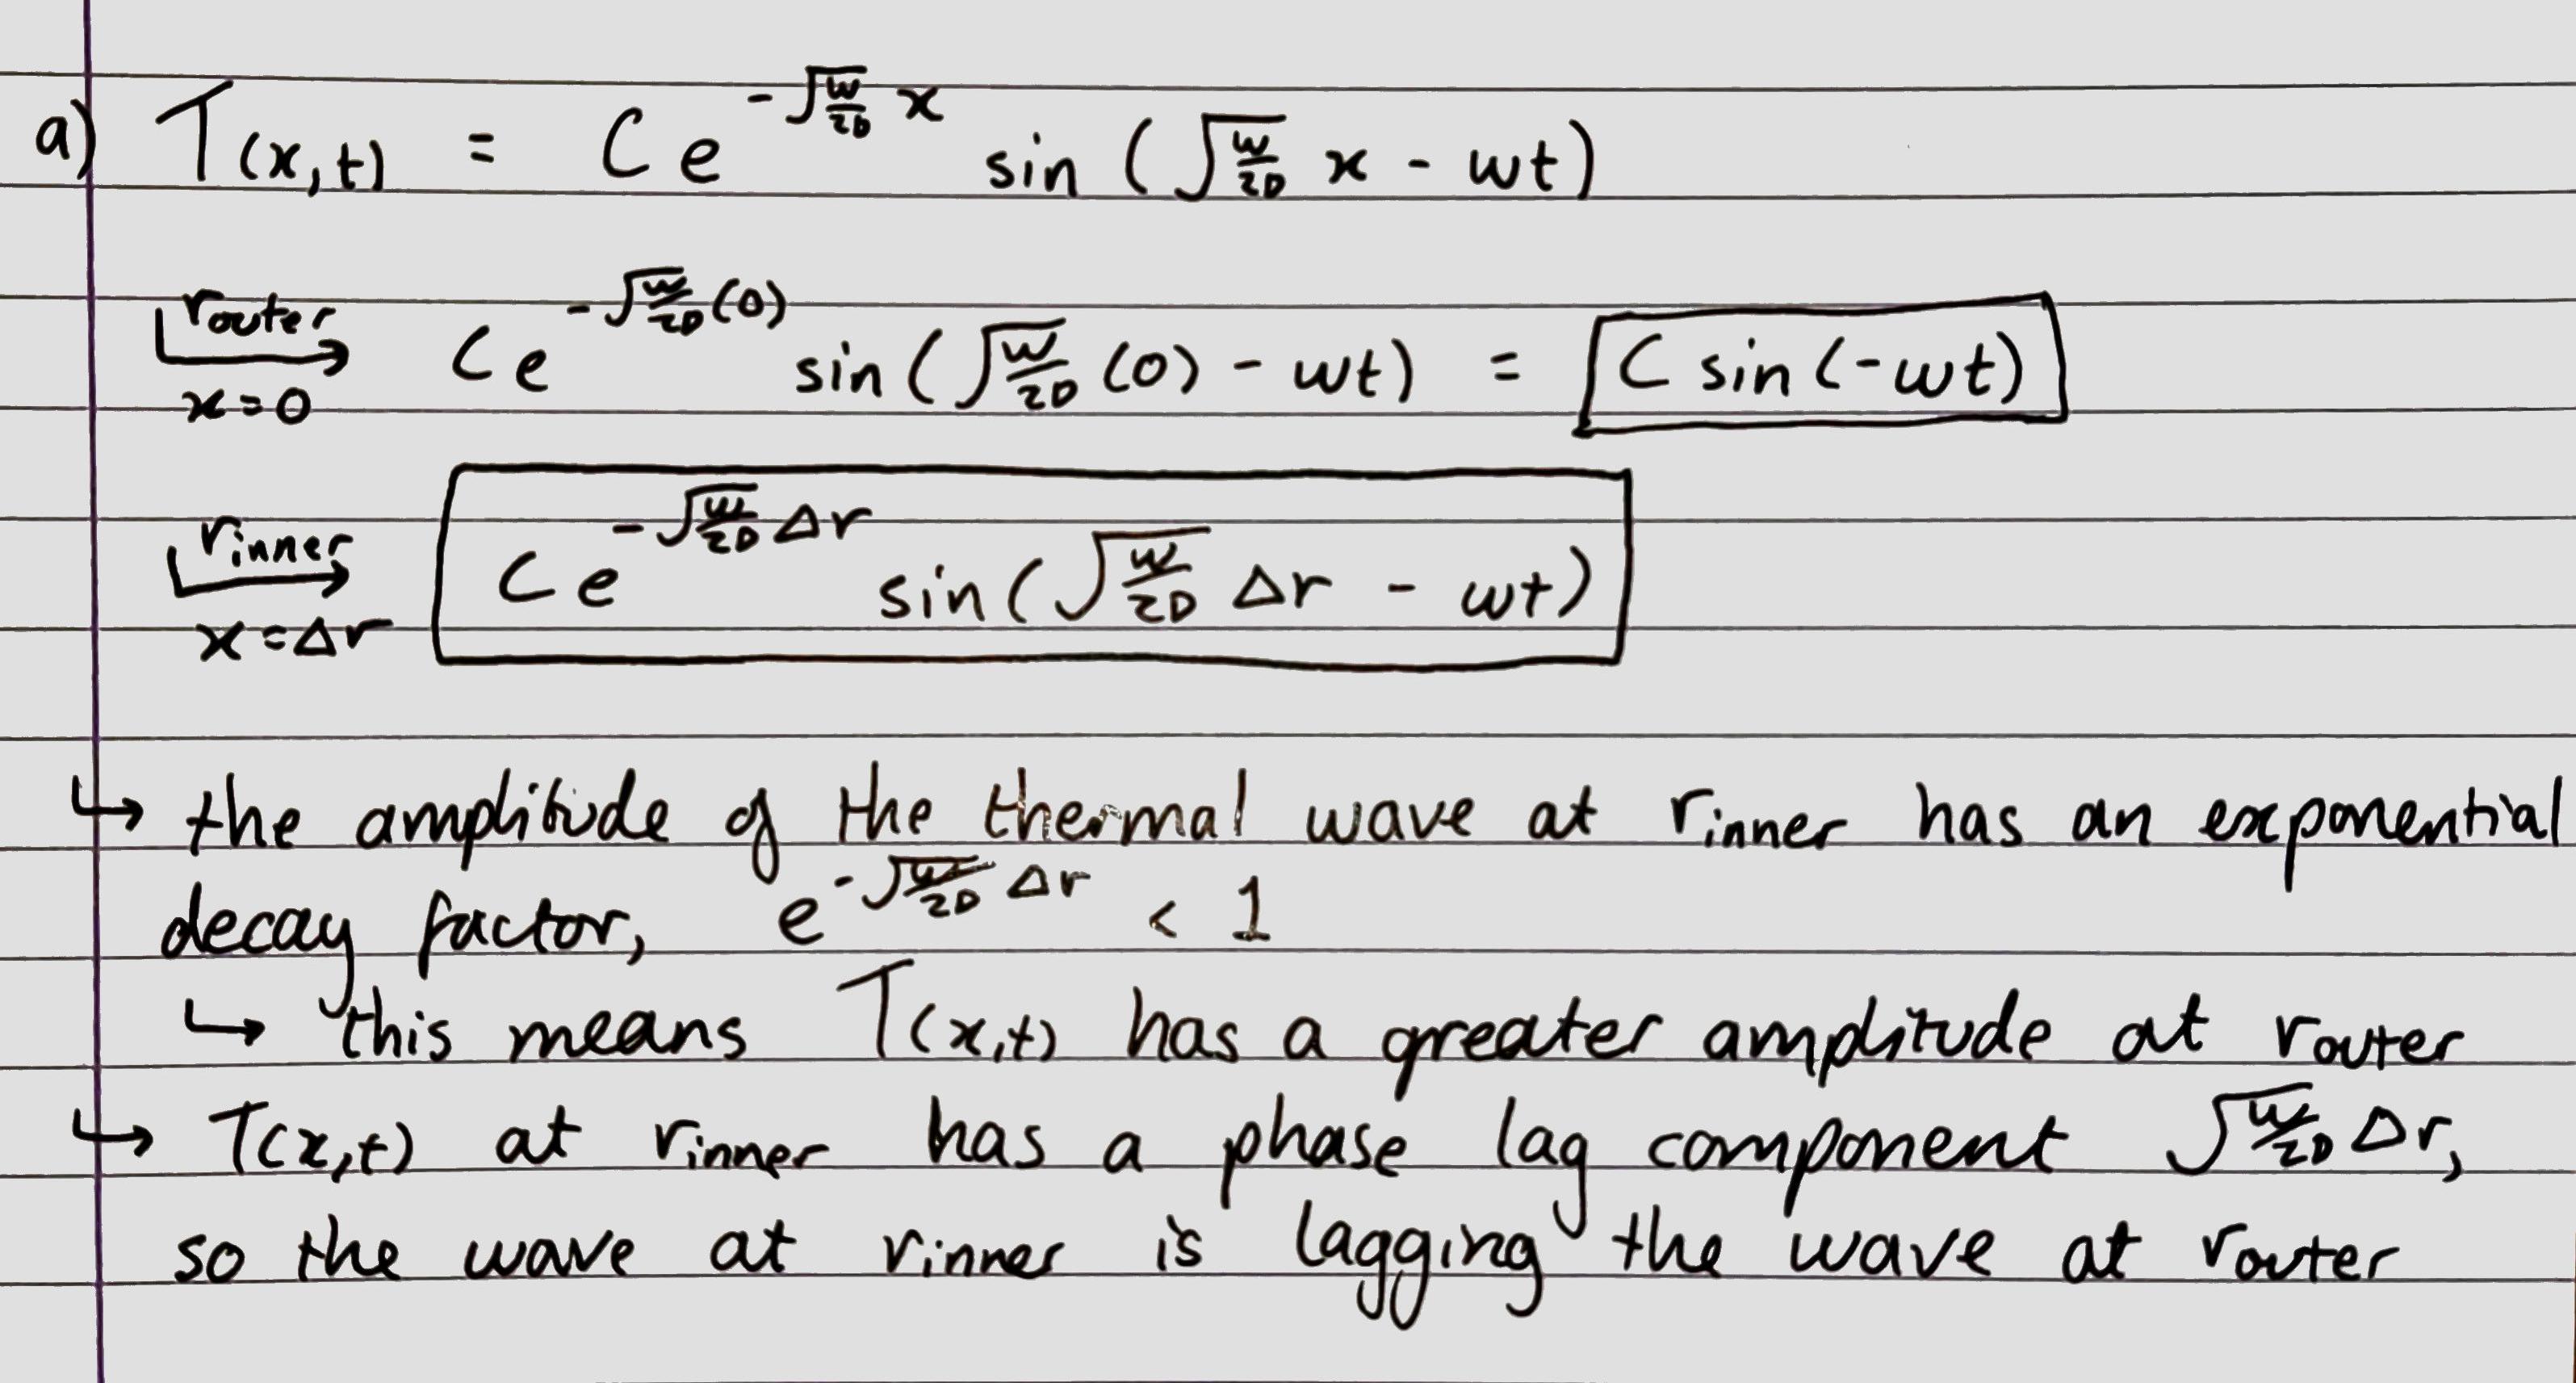 a) T(x,t) = C e^{-√(w/2D) x} sin(√(w/2D) x - wt)
↳ r outer, x=0 → C e^{-√(w/2D)(0)} sin(√(w/2D)(0) - wt) = C sin(-wt)
↳ r inner, x=Δr → C e^{-√(w/2D) Δr} sin(√(w/2D) Δr - wt)
↳ the amplitude of the thermal wave at r inner has an exponential
decay factor, e^{-√(w/2D) Δr} < 1
↳ this means T(x,t) has a greater amplitude at r outer
↳ T(x,t) at r inner has a phase lag component √(w/2D) Δr,
so the wave at r inner is lagging the wave at r outer